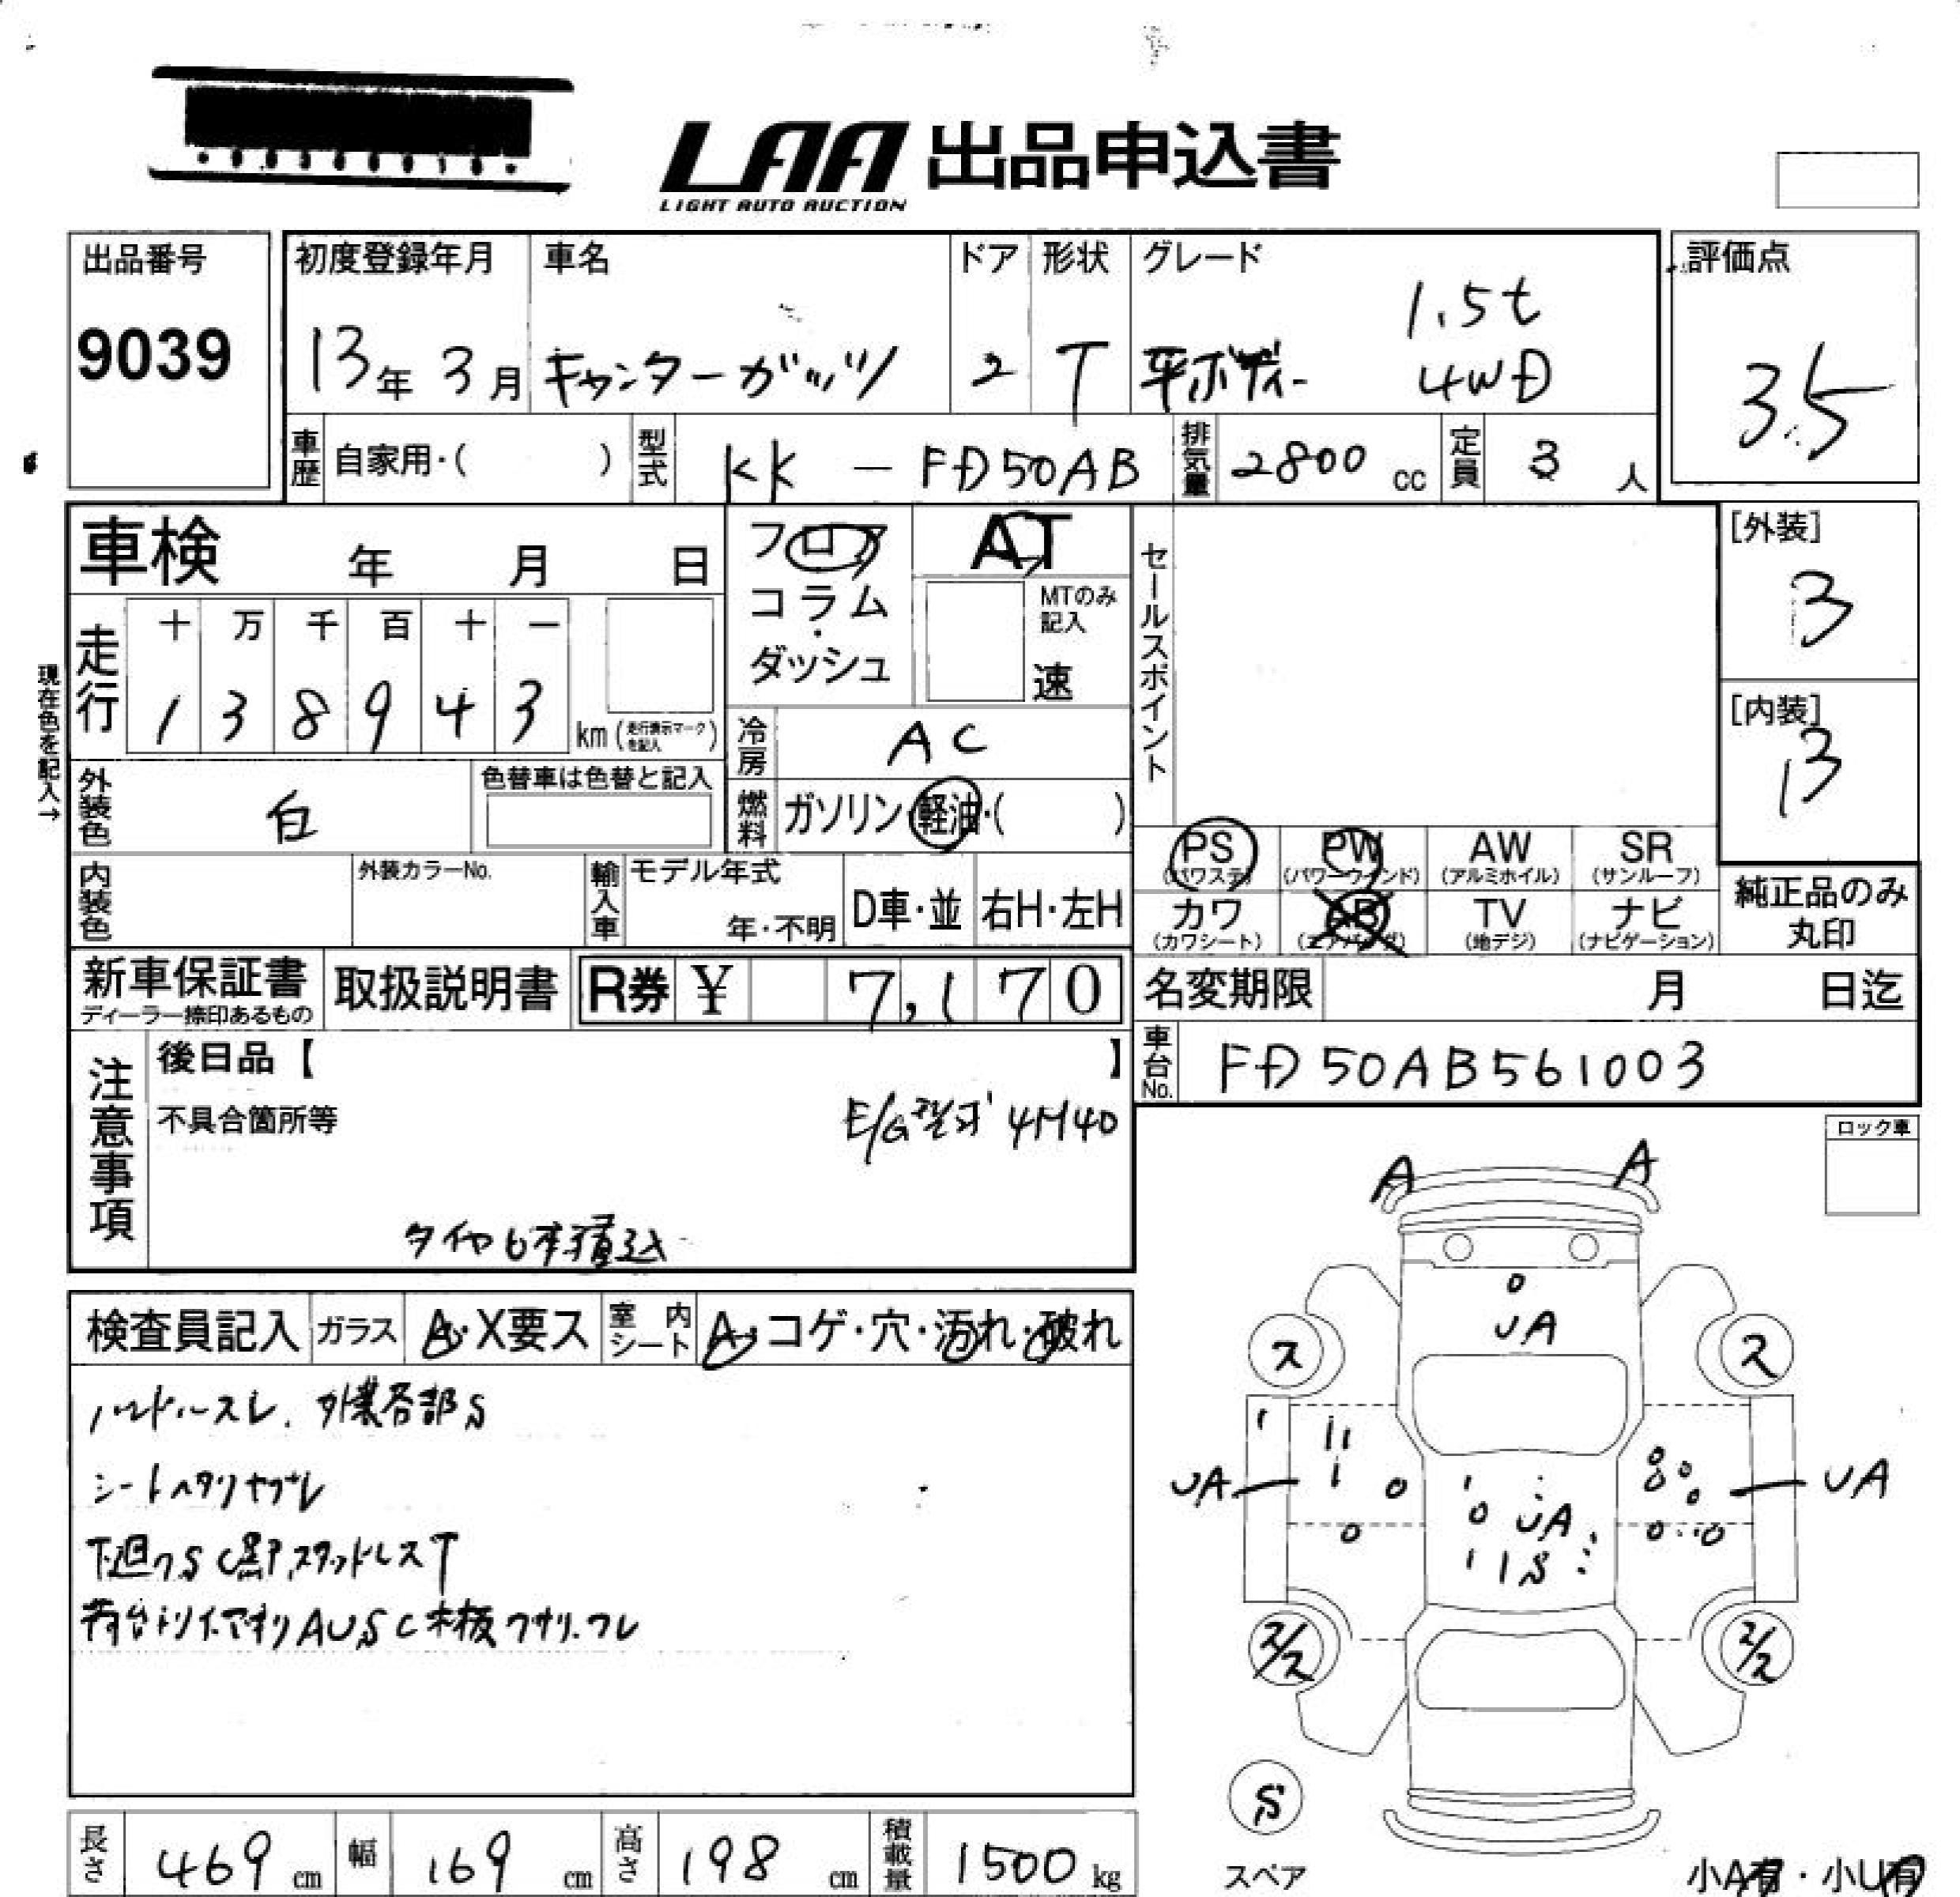 LAA 出品申込書
LIGHT AUTO AUCTION
出品番号
9039
初度登録年月
13年 3月
車名
キャンターガッツ
ドア
2
形状
T
グレード
1.5t
平ボディー 4WD
評価点
3.5
車歴 自家用・( )
型式 KK - FD50AB
排気量 2800 cc
定員 3 人
車検 年 月 日
フロア
コラム
・
ダッシュ
AT
MTのみ
記入
速
セールスポイント
[外装]
3
[内装]
3
現在色を記入→
走行
十 万 千 百 十 一
1 3 8 9 4 3 km (走行表示マークを記入)
冷房 AC
外装色 白
色替車は色替と記入
燃料 ガソリン・軽油・( )
PS (パワステ)
PW (パワーウインド)
AW (アルミホイル)
SR (サンルーフ)
カワ (カワシート)
AB (エアバッグ)
TV (地デジ)
ナビ (ナビゲーション)
純正品のみ
丸印
内装色
外装カラーNo.
輸入車
モデル年式
年・不明
D車・並
右H・左H
新車保証書
ディーラー捺印あるもの
取扱説明書
R券 ¥ 7,170
名変期限 月 日迄
車台No. FD50AB561003
注意事項
後日品【 】
不具合箇所等
E/G型式 4M40
タイヤ6本積込
ロック車
検査員記入
ガラス A・X要ス
室内シート A・コゲ・穴・汚れ・破れ
ハンドルスレ、外装各部S
シートヘタリヤブレ
下廻りSC黒P、スタッドレスT
荷台トリイアオリAUSC木板クサリ、ワレ
A A
UA
ス ス
UA UA
UA
S
ス/ス ス/ス
S
スペア
小A有・小U有
長さ 469 cm
幅 169 cm
高さ 198 cm
積載量 1500 kg